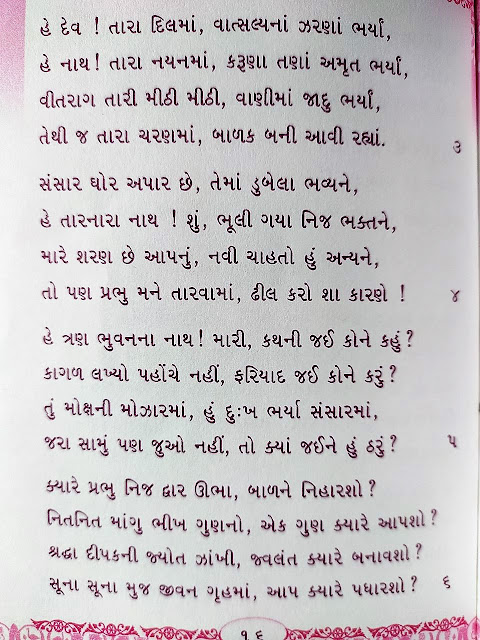 હે દેવ ! તારા દિલમાં, વાત્સલ્યનાં ઝરણાં ભર્યાં,
હે નાથ! તારા નયનમાં, કરૂણા તણાં અમૃત ભર્યાં,
વીતરાગ તારી મીઠી મીઠી, વાણીમાં જાદુ ભર્યાં,
તેથી જ તારા ચરણમાં, બાળક બની આવી રહ્યાં. ૩
સંસાર ઘોર અપાર છે, તેમાં ડુબેલા ભવ્યને,
હે તારનારા નાથ ! શું, ભૂલી ગયા નિજ ભક્તને,
મારે શરણ છે આપનું, નવી ચાહતો હું અન્યને,
તો પણ પ્રભુ મને તારવામાં, ઢીલ કરો શા કારણે ! ૪
હે ત્રણ ભુવનના નાથ! મારી, કથની જઈ કોને કહું?
કાગળ લખ્યો પહોંચે નહીં, ફરિયાદ જઈ કોને કરું?
તું મોક્ષની મોઝારમાં, હું દુઃખ ભર્યા સંસારમાં,
જરા સામું પણ જુઓ નહીં, તો ક્યાં જઈને હું ઠરું? ૫
ક્યારે પ્રભુ નિજ દ્વાર ઊભા, બાળને નિહારશો?
નિતનિત માંગુ ભીખ ગુણનો, એક ગુણ ક્યારે આપશો?
શ્રદ્ધા દીપકની જ્યોત ઝાંખી, જ્વલંત ક્યારે બનાવશો?
સૂના સૂના મુજ જીવન ગૃહમાં, આપ ક્યારે પધારશો? ૬
૧૬